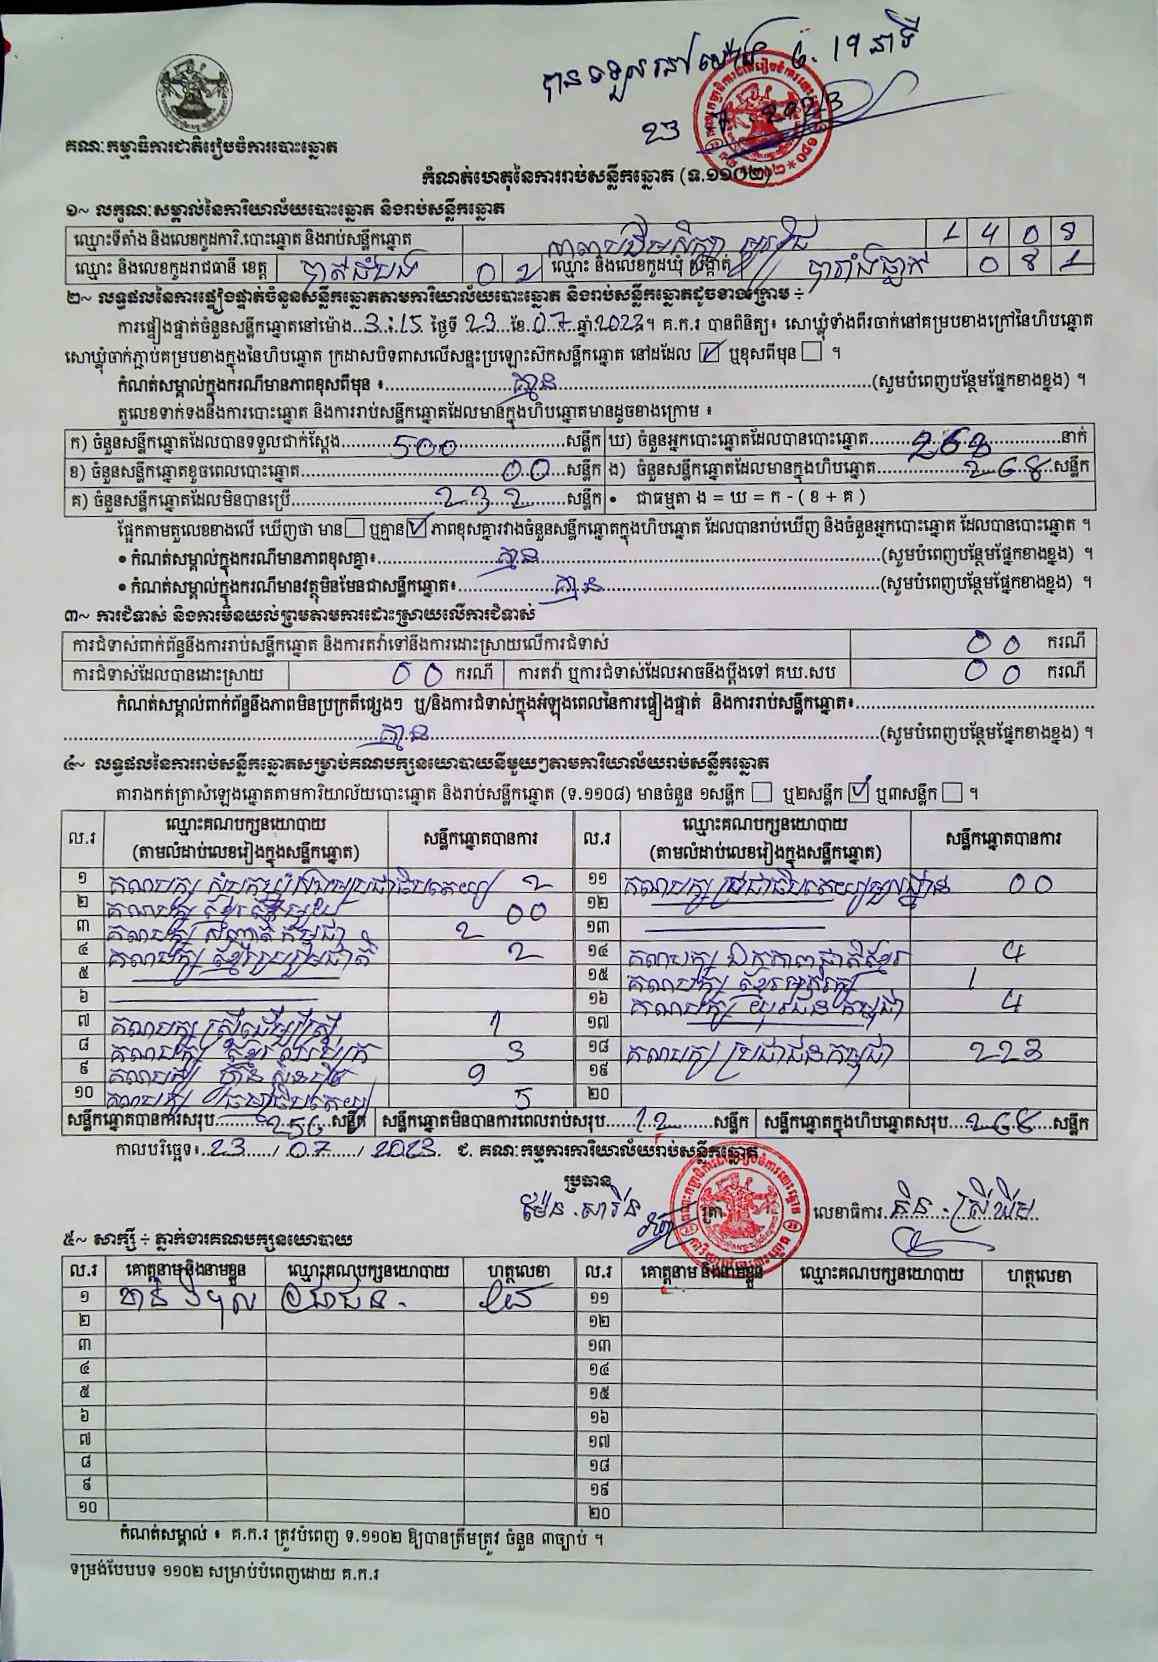 បានទទួលនៅម៉ោង 6. 19 នាទី
23 7 2023
គណៈកម្មាធិការជាតិរៀបចំការបោះឆ្នោត
កំណត់ហេតុនៃការរាប់សន្លឹកឆ្នោត (ទ.១១០២)
១~ លក្ខណៈសម្គាល់នៃការិយាល័យបោះឆ្នោត និងរាប់សន្លឹកឆ្នោត
ឈ្មោះទីតាំង និងលេខកូដការិ.បោះឆ្នោត និងរាប់សន្លឹកឆ្នោត
ឈ្មោះ និងលេខកូដរាជធានី ខេត្ត បាត់ដំបង 0 2 ឈ្មោះ និងលេខកូដឃុំ សង្កាត់ 0 8 1
២~ លទ្ធផលនៃការផ្ទៀងផ្ទាត់ចំនួនសន្លឹកឆ្នោតតាមការិយាល័យបោះឆ្នោត និងរាប់សន្លឹកឆ្នោតដូចខាងក្រោម ÷
ការផ្ទៀងផ្ទាត់ចំនួនសន្លឹកឆ្នោតនៅម៉ោង 3:15 ថ្ងៃទី 23 ខែ 07 ឆ្នាំ 2023។ គ.ក.រ បានពិនិត្យ៖ សោឃ្លុំទាំងពីរចាក់នៅគម្របខាងក្រៅនៃហិបឆ្នោត
សោឃ្លុំចាក់ភ្ជាប់គម្របខាងក្នុងនៃហិបឆ្នោត ក្រដាសបិទពាសលើសន្ទះប្រឡោះស៊កសន្លឹកឆ្នោត នៅដដែល ☑ ឬខុសពីមុន ☐ ។
កំណត់សម្គាល់ក្នុងករណីមានភាពខុសពីមុន ៖ គ្មាន (សូមបំពេញបន្ថែមផ្នែកខាងខ្នង) ។
តួលេខទាក់ទងនឹងការបោះឆ្នោត និងការរាប់សន្លឹកឆ្នោតដែលមានក្នុងហិបឆ្នោតមានដូចខាងក្រោម ៖
ក) ចំនួនសន្លឹកឆ្នោតដែលបានទទួលជាក់ស្តែង 500 សន្លឹក ឃ) ចំនួនអ្នកបោះឆ្នោតដែលបានបោះឆ្នោត 268 នាក់
ខ) ចំនួនសន្លឹកឆ្នោតខូចពេលបោះឆ្នោត 00 សន្លឹក ង) ចំនួនសន្លឹកឆ្នោតដែលមានក្នុងហិបឆ្នោត 268 សន្លឹក
គ) ចំនួនសន្លឹកឆ្នោតដែលមិនបានប្រើ 232 សន្លឹក • ជាធម្មតា ង = ឃ = ក - ( ខ + គ )
ផ្អែកតាមតួលេខខាងលើ ឃើញថា មាន ☐ ឬគ្មាន ☑ ភាពខុសគ្នារវាងចំនួនសន្លឹកឆ្នោតក្នុងហិបឆ្នោត ដែលបានរាប់ឃើញ និងចំនួនអ្នកបោះឆ្នោត ដែលបានបោះឆ្នោត ។
• កំណត់សម្គាល់ក្នុងករណីមានភាពខុសគ្នា៖ គ្មាន (សូមបំពេញបន្ថែមផ្នែកខាងខ្នង) ។
• កំណត់សម្គាល់ក្នុងករណីមានវត្ថុមិនមែនជាសន្លឹកឆ្នោត៖ គ្មាន (សូមបំពេញបន្ថែមផ្នែកខាងខ្នង) ។
៣~ ការជំទាស់ និងការមិនយល់ព្រមតាមការដោះស្រាយលើការជំទាស់
ការជំទាស់ពាក់ព័ន្ធនឹងការរាប់សន្លឹកឆ្នោត និងការតវ៉ាទៅនឹងការដោះស្រាយលើការជំទាស់ 00 ករណី
ការជំទាស់ដែលបានដោះស្រាយ 00 ករណី ការតវ៉ា ឬការជំទាស់ដែលអាចនឹងប្តឹងទៅ គឃ.សប 00 ករណី
កំណត់សម្គាល់ពាក់ព័ន្ធនឹងភាពមិនប្រក្រតីផ្សេងៗ ឬ/និងការជំទាស់ក្នុងអំឡុងពេលនៃការផ្ទៀងផ្ទាត់ និងការរាប់សន្លឹកឆ្នោត៖
គ្មាន (សូមបំពេញបន្ថែមផ្នែកខាងខ្នង) ។
៤~ លទ្ធផលនៃការរាប់សន្លឹកឆ្នោតសម្រាប់គណបក្សនយោបាយនីមួយៗតាមការិយាល័យរាប់សន្លឹកឆ្នោត
តារាងកត់ត្រាសំឡេងឆ្នោតតាមការិយាល័យបោះឆ្នោត និងរាប់សន្លឹកឆ្នោត (ទ.១១០៨) មានចំនួន ១សន្លឹក ☐ ឬ២សន្លឹក ☑ ឬ៣សន្លឹក ☐ ។
ល.រ ឈ្មោះគណបក្សនយោបាយ (តាមលំដាប់លេខរៀងក្នុងសន្លឹកឆ្នោត) សន្លឹកឆ្នោតបានការ ល.រ ឈ្មោះគណបក្សនយោបាយ (តាមលំដាប់លេខរៀងក្នុងសន្លឹកឆ្នោត) សន្លឹកឆ្នោតបានការ
១ គណបក្ស 2 ១១ គណបក្ស 00
២ គណបក្ស 00 ១២
៣ គណបក្ស សញ្ជាតិកម្ពុជា 2 ១៣
៤ គណបក្ស ខ្មែររួបរួមជាតិ 2 ១៤ គណបក្ស ឯកភាពជាតិខ្មែរ 4
៥ ១៥ គណបក្ស 1
៦ ១៦ គណបក្ស យុវជនកម្ពុជា 4
៧ គណបក្ស ស្ត្រីដើម្បីស្ត្រី 1 ១៧
៨ គណបក្ស 3 ១៨ គណបក្ស ប្រជាជនកម្ពុជា 223
៩ គណបក្ស 9 ១៩
១០ គណបក្ស ធម្មាធិបតេយ្យ 5 ២០
សន្លឹកឆ្នោតបានការសរុប 256 សន្លឹក សន្លឹកឆ្នោតមិនបានការពេលរាប់សរុប 12 សន្លឹក សន្លឹកឆ្នោតក្នុងហិបឆ្នោតសរុប 268 សន្លឹក
កាលបរិច្ឆេទ៖ 23 / 07 / 2023. ជ. គណៈកម្មការការិយាល័យរាប់សន្លឹកឆ្នោត
ប្រធាន
ត្រា លេខាធិការ
៥~ សាក្សី ÷ ភ្នាក់ងារគណបក្សនយោបាយ
ល.រ គោត្តនាម និងនាមខ្លួន ឈ្មោះគណបក្សនយោបាយ ហត្ថលេខា ល.រ គោត្តនាម និងនាមខ្លួន ឈ្មោះគណបក្សនយោបាយ ហត្ថលេខា
១ ប្រជាជន ១១
២ ១២
៣ ១៣
៤ ១៤
៥ ១៥
៦ ១៦
៧ ១៧
៨ ១៨
៩ ១៩
១០ ២០
កំណត់សម្គាល់ ៖ គ.ក.រ ត្រូវបំពេញ ទ.១១០២ ឱ្យបានត្រឹមត្រូវ ចំនួន ៣ច្បាប់ ។
ទម្រង់បែបបទ ១១០២ សម្រាប់បំពេញដោយ គ.ក.រ